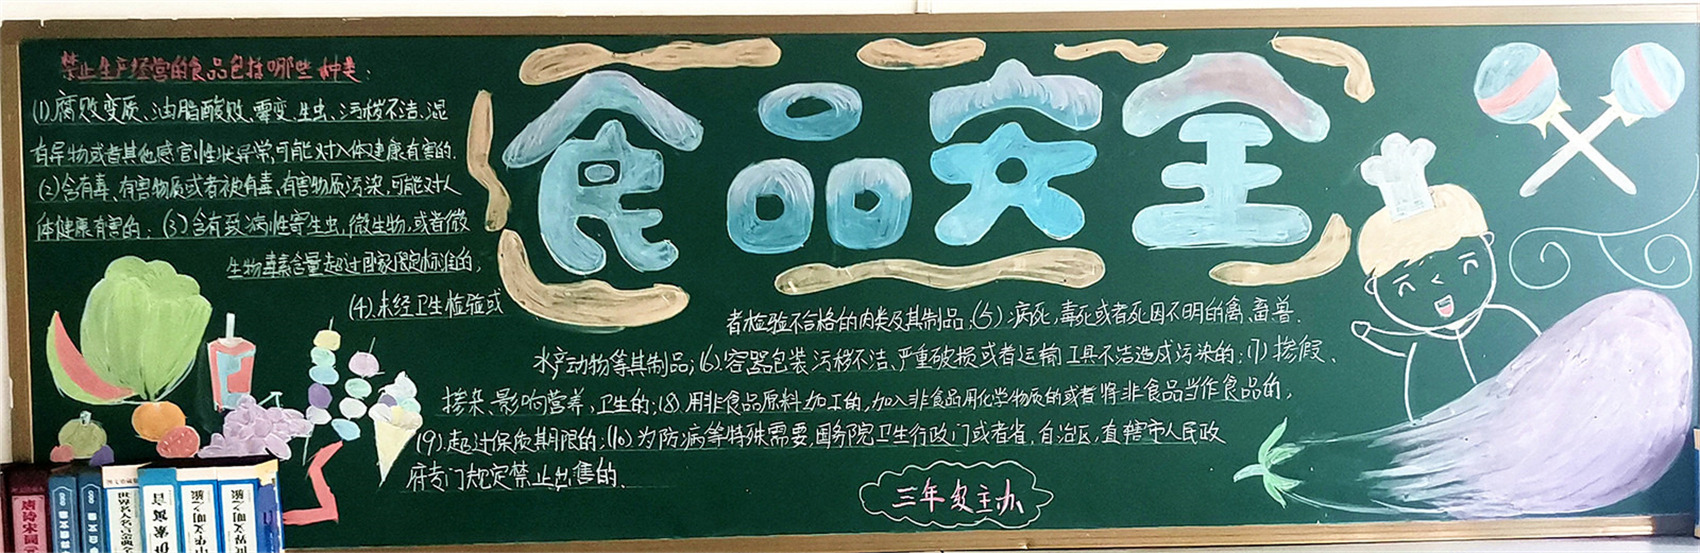 食品安全
禁止生产经营的食品包括哪些种类:
(1).腐败变质、油脂酸败、霉变、生虫、污秽不洁、混
有异物或者其他感官性状异常,可能对人体健康有害的.
(2)含有毒、有害物质或者被有毒、有害物质污染,可能对人
体健康有害的;(3)含有致病性寄生虫,微生物,或者微
生物毒素含量超过国家限定标准的;
(4).未经卫生检验或
者检验不合格的肉类及其制品;(5);病死,毒死或者死因不明的禽、畜、兽.
水产动物等其制品;(6).容器包装污秽不洁、严重破损或者运输工具不洁造成污染的;(7)掺假、
掺杂、影响营养,卫生的;(8).用非食品原料加工的,加入非食品用化学物质的或者将非食品当作食品的,
(9).超过保质期限的;(10)为防病等特殊需要,国务院卫生行政门或者省,自治区,直辖市人民政
府专门规定禁止出售的.
三年级主办
唐诗宋词元
世界名人名言金典全